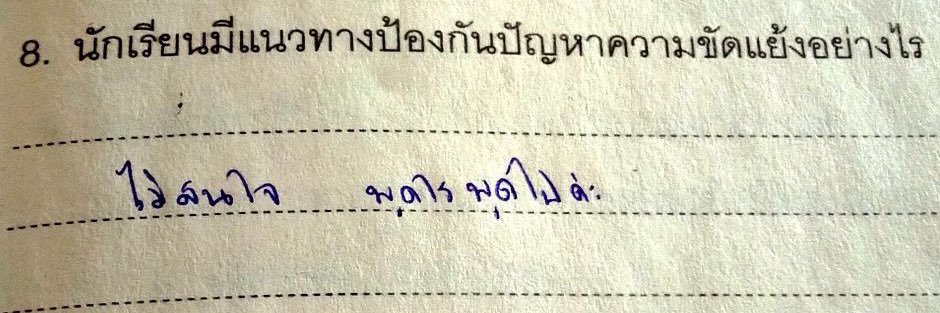 8. นักเรียนมีแนวทางป้องกันปัญหาความขัดแย้งอย่างไร
ไม่สนใจ พูดไร พูดไปค่ะ